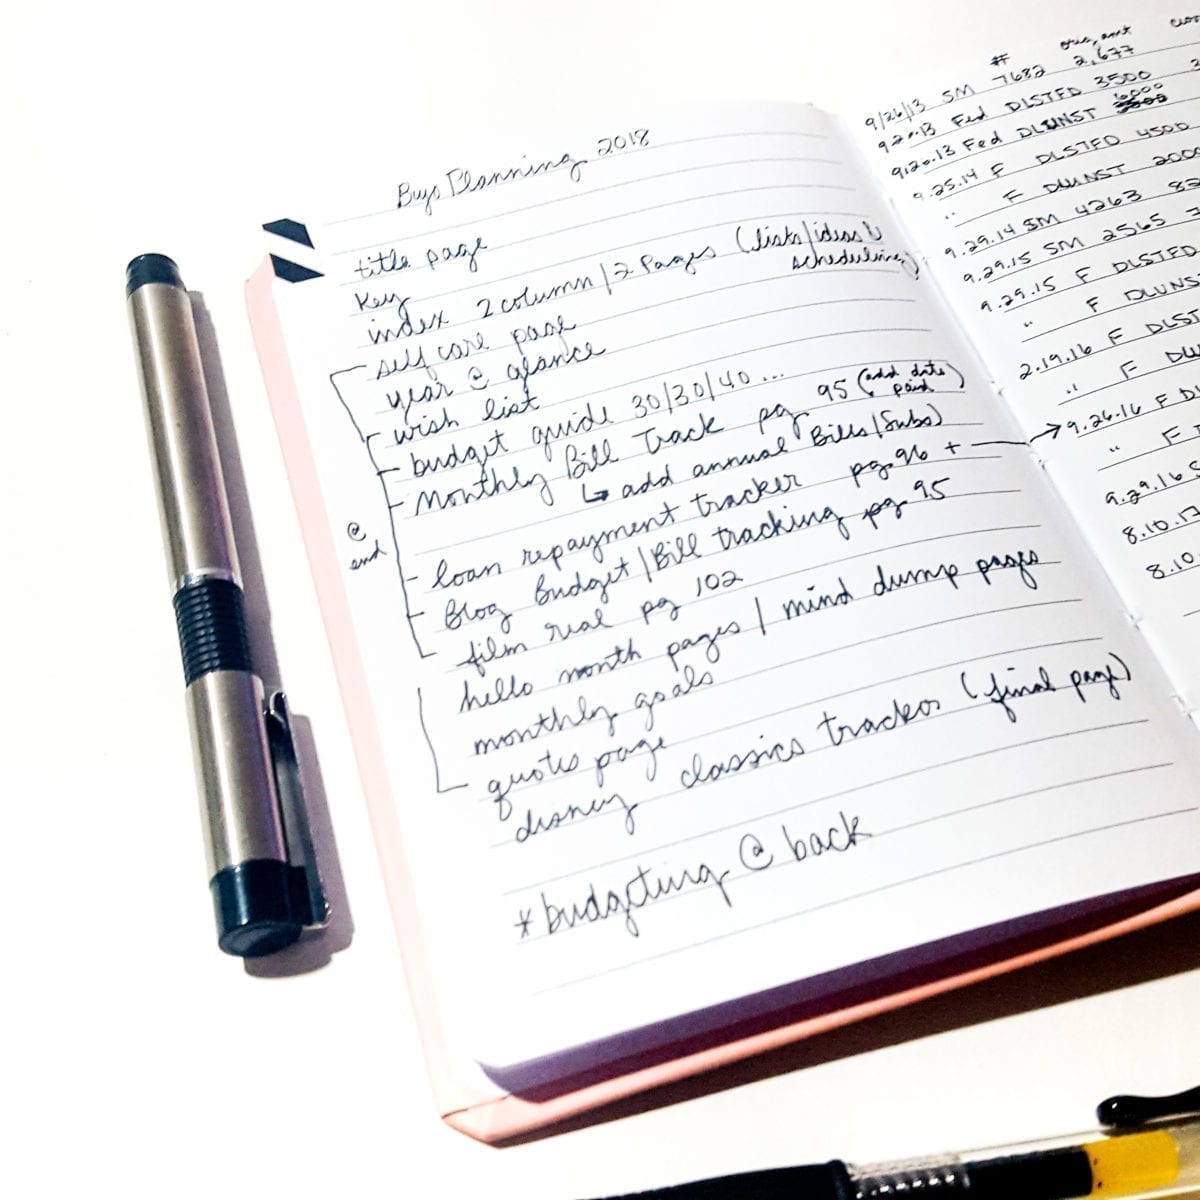 Bujo Planning 2018
title page
Key
index 2 column / 2 Pages (lists/ideas &
scheduling)
self care page
year @ glance
wish list
budget guide 30/30/40...
Monthly Bill Track pg 95 (add date
paid)
↳ add annual Bills/Subs)
loan repayment tracker pg. 96 + →
Blog Budget/Bill tracking pg 95
film real pg 102
@
end
hello month pages / mind dump pages
monthly goals
quotes page
disney classics tracker (final page)
* budgeting @ back
# orig, amt
9/26/13 SM 7682 2,677
9.20.13 Fed DLSTFD 3500
9.20.13 Fed DLUNST 6000
9.25.14 F DLSTFD 4500
" F DLUNST 2000
9.29.14 SM 4263
9.29.15 SM 2565
9.29.15 F DLSTFD
" F DLUNS
2.19.16 F DLST
" F DLU
9.26.16 F D
" F
9.29.16 S
8.10.17
8.10